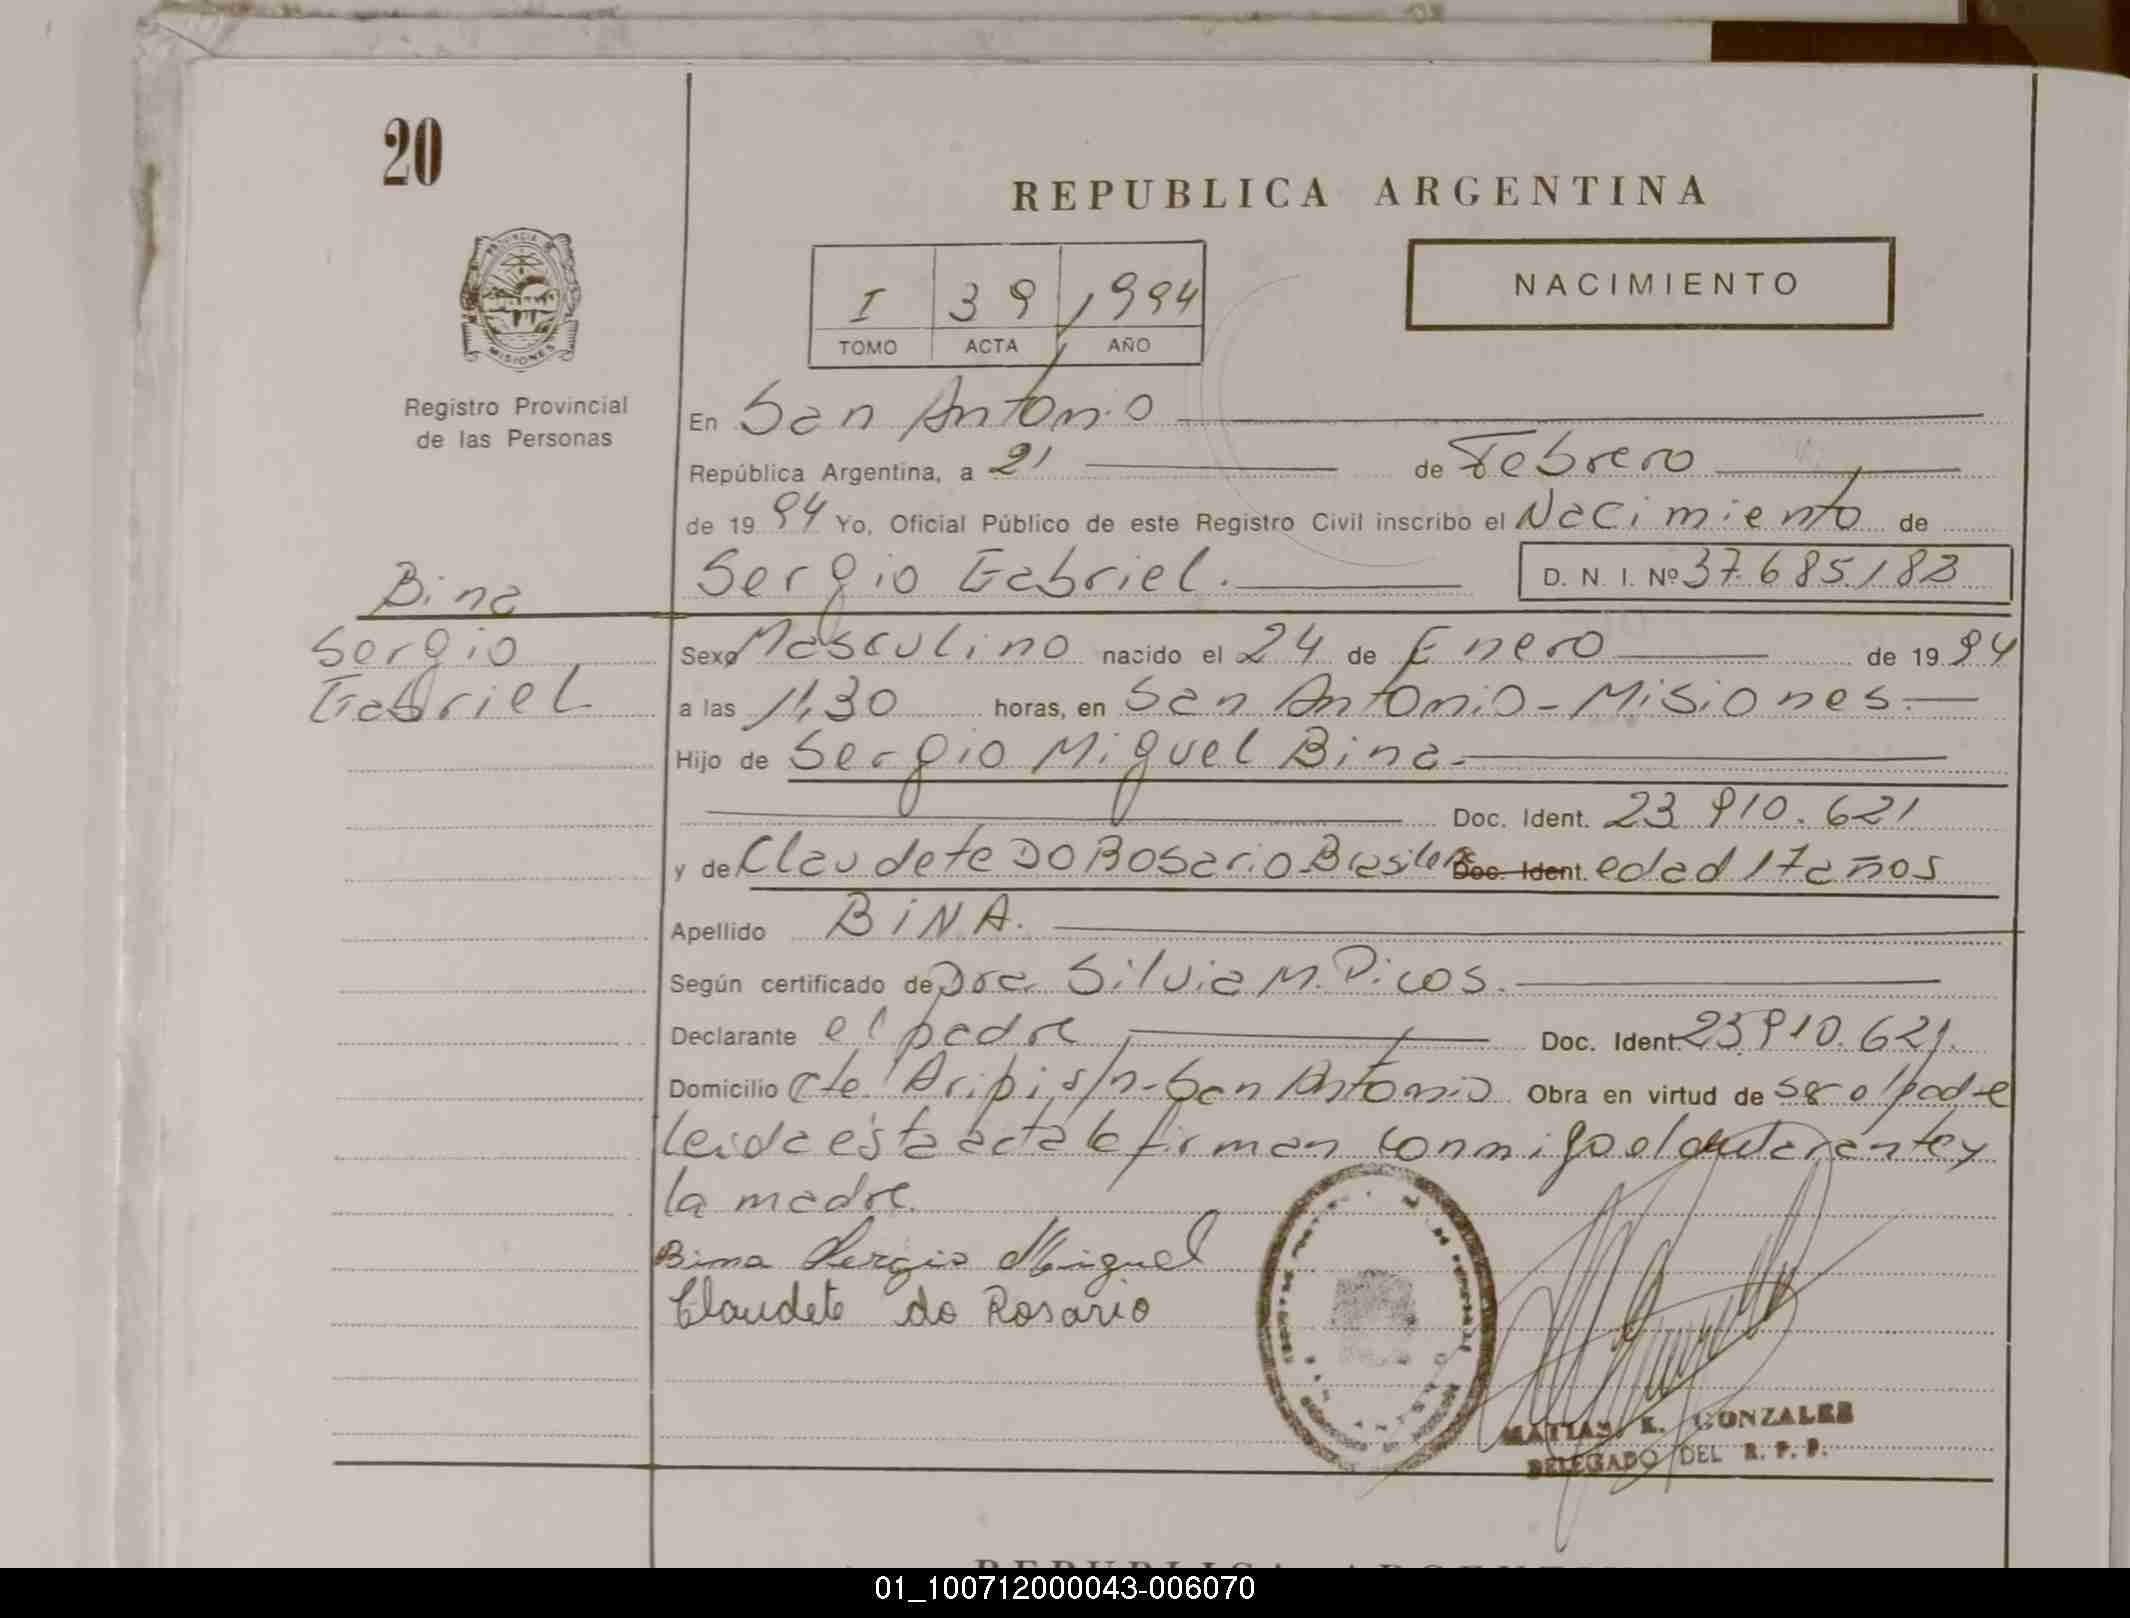 20
REPUBLICA ARGENTINA
PROVINCIA DE
MISIONES
I 39 1994
TOMO ACTA AÑO
NACIMIENTO
Registro Provincial
de las Personas
En San Antonio
República Argentina, a 21 de Febrero
de 19 94 Yo, Oficial Público de este Registro Civil inscribo el Nacimiento de
Sergio Gabriel. D. N. I. Nº 37.685.183
Bina
Sergio
Gabriel
Sexo Masculino nacido el 24 de Enero de 19 94
a las 11,30 horas, en San Antonio - Misiones.
Hijo de Sergio Miguel Bina.
Doc. Ident. 23.910.621
y de Claudete Do Rosario-Brasilera Doc. Ident. edad 17 años
Apellido BINA.
Según certificado de Dra. Silvia M. Picos.
Declarante el padre Doc. Ident. 23.910.621.
Domicilio Cte. s/n - San Antonio Obra en virtud de ser el padre
leida esta acta la firman conmigo el declarante y
la madre.
Bina Sergio Miguel
Claudete do Rosario
MATIAS E. GONZALES
DELEGADO DEL R. P. P.
REPUBLICA ARGENTINA
01_100712000043-006070